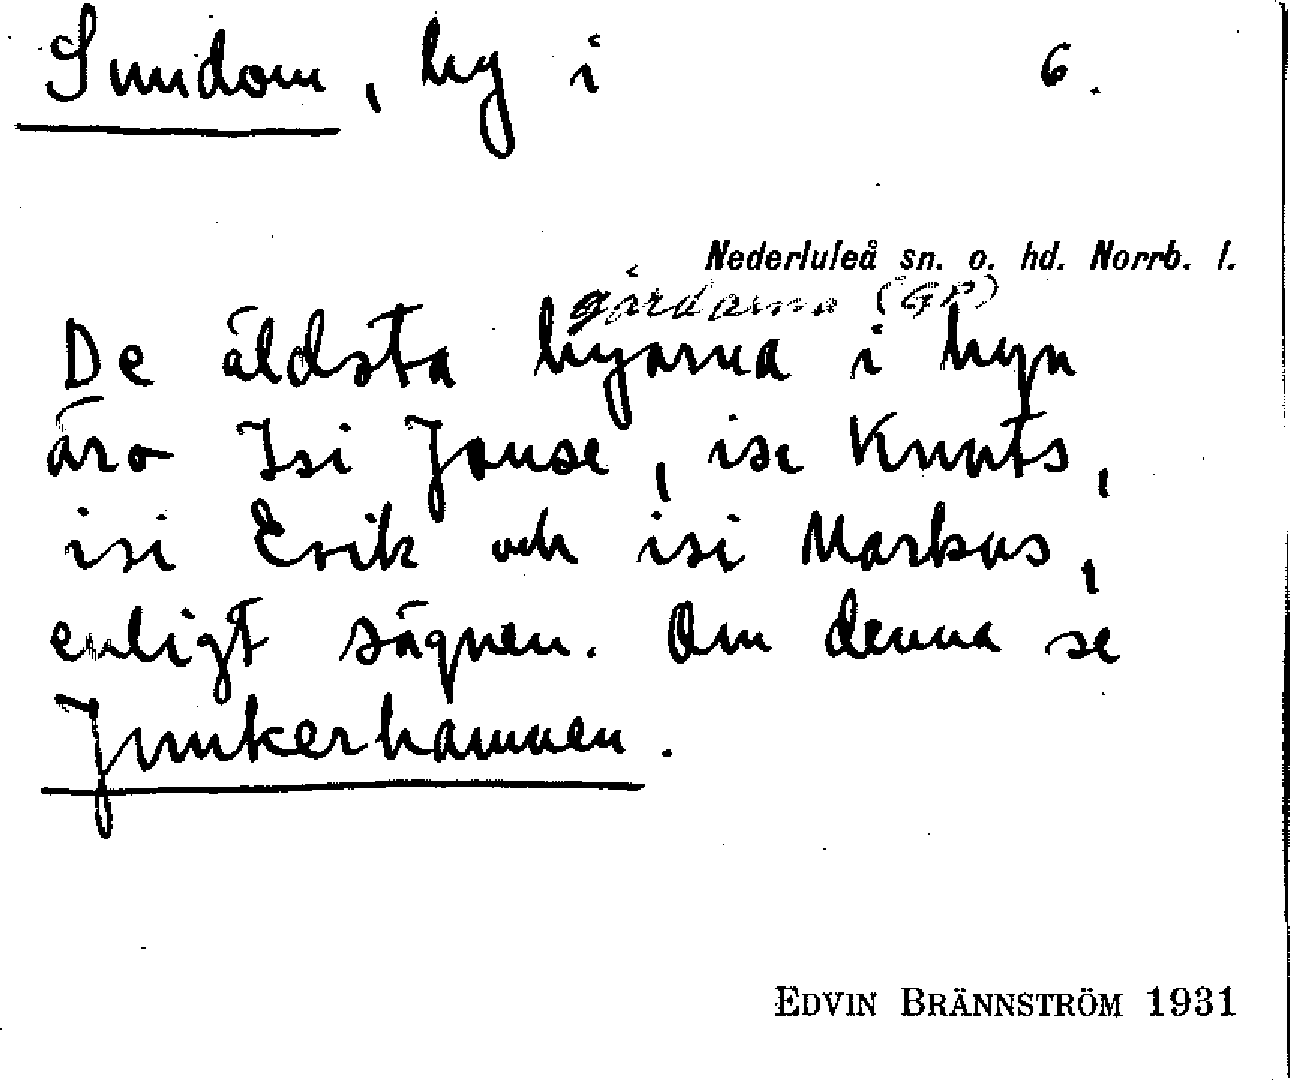 Sundom, by i 6.
Nederluleå sn. o. hd. Norrb. l.
gårdarna (GP)
De äldsta byarna i byn
äro Isi Jonse, ise Knuts,
isi Erik och isi Markus,
enligt sägnen. Om denna se
Junkerhamnen.
EDVIN BRÄNNSTRÖM 1931